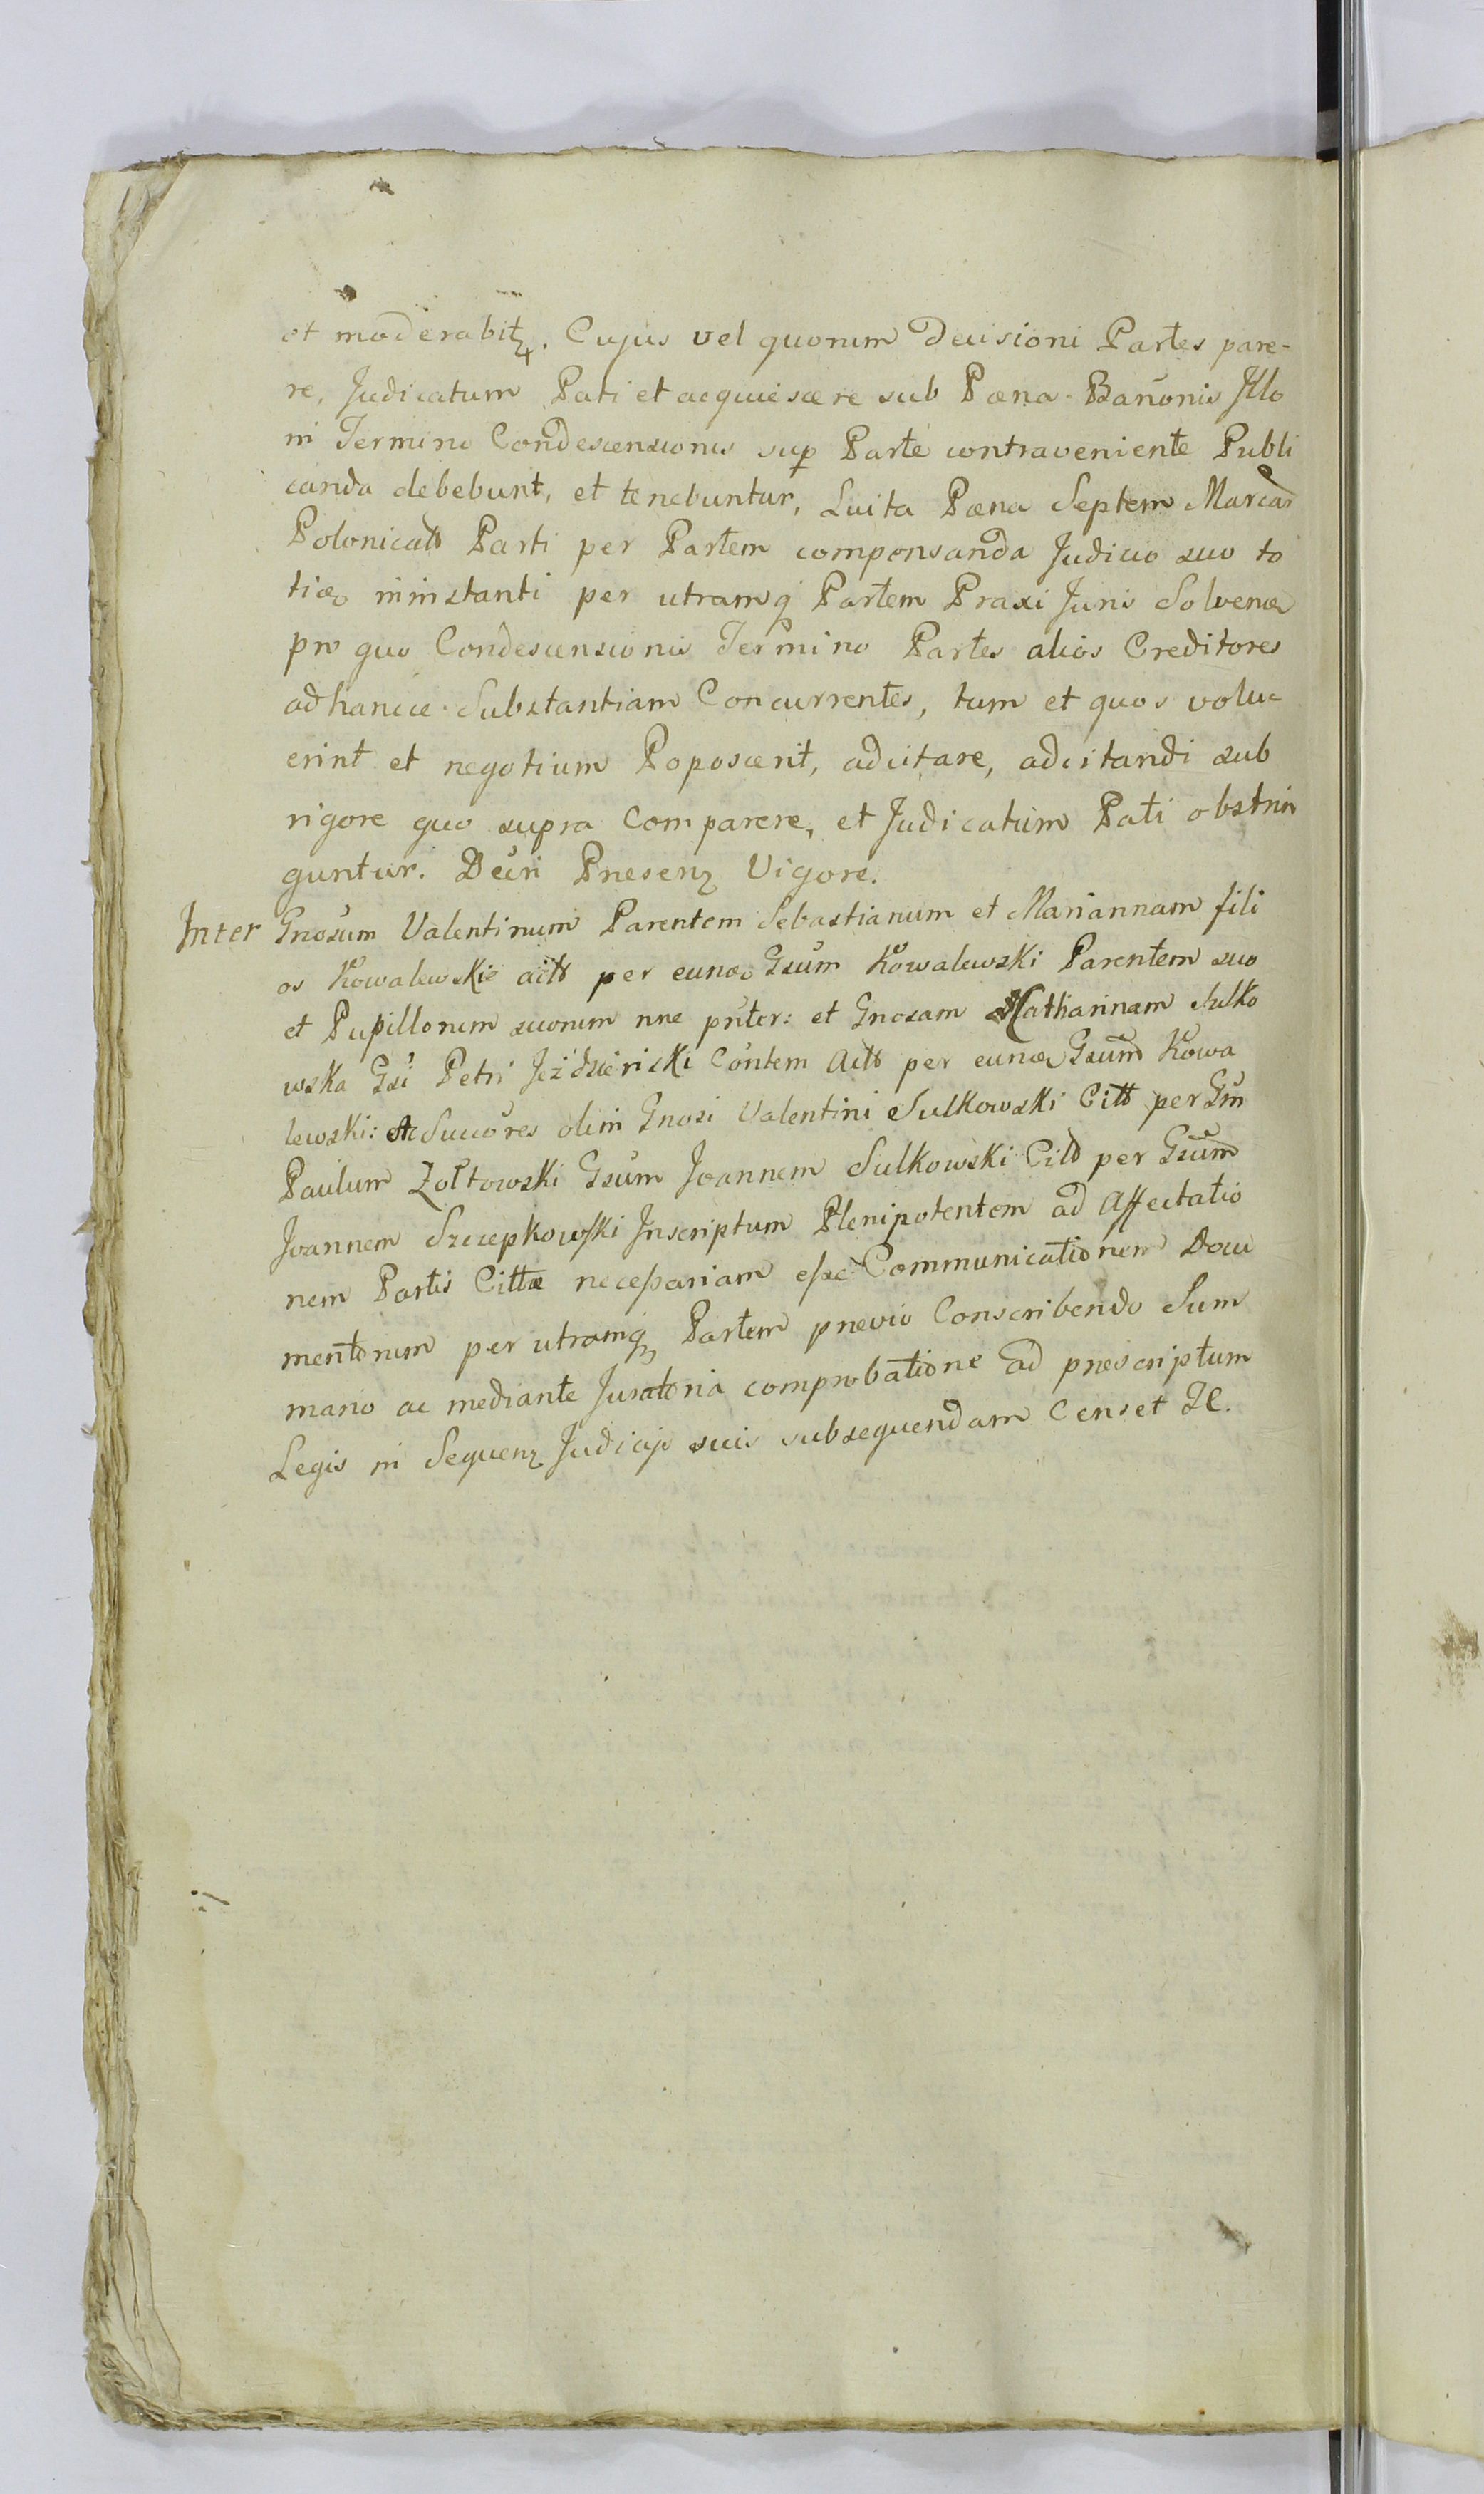 et moderabitr. Cujus vel quorum Decisioni Partes pare-
re, Judicatum Pati et acquiescere sub Pœna Banonis Illo
in Termino Condescensionis sup Parte contraveniente Publi
canda debebunt, et tenebuntur, Luita Pœna Septem Marcar
Polonicall Parti per Partem compensanda Judicio suo to
ties ininstanti per utramq Partem Praxi Juris Solvenda
pro quo Condescensionis Termino Partes alios Creditores
ad hancce Substantiam Concurrentes, tum et quos volu=
erint et negotium Poposcerit, adcitare, adcitandi sub
rigore quo supra Comparere, et Judicatum Pati obstrin
guntur. Decri Presenz Vigore.
Inter Gnosum Valentinum Parentem Sebastianum et Mariannam fili
os Kowalewskie actt per eunde Gsum Kowalewski Parentem suo
et Pupillorum suorum nne prter: et Gnosam Catharinam Sulko
wska Gsi Petri Jeżdzienski Contem Actt per eunde Gsum Kowa
lewski: Ac Succores olim Gnosi Valentini Sulkowski Citt per Gm
Paulum Zołtowski Gsum Joannem Sulkowski Citt per Gsum
Joannem Szczepkowski Inscriptum Plenipotentem ad Affectatio
nem Partis Cittæ necessariam esse Communicationem Docu
mentorum per utramq Partem previo Conscribendo Sum
mario ac mediante Juratoria comprobatione ad prescriptum
Legis in Sequenz Judicijs suis subsequendam Censet JC.